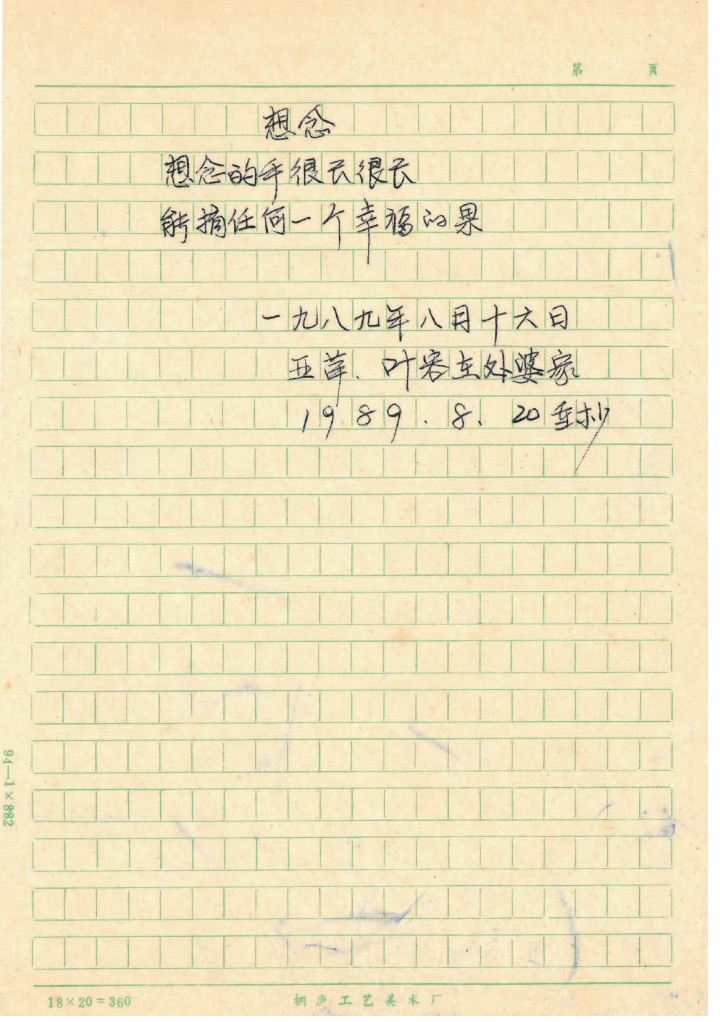 第 页
想念
想念的手很长很长
能摘任何一个幸福的果
一九八九年八月十六日
亚萍、叶客在外婆家
1989.8.20重抄
94—1×882
18×20=360
桐庐工艺美术厂